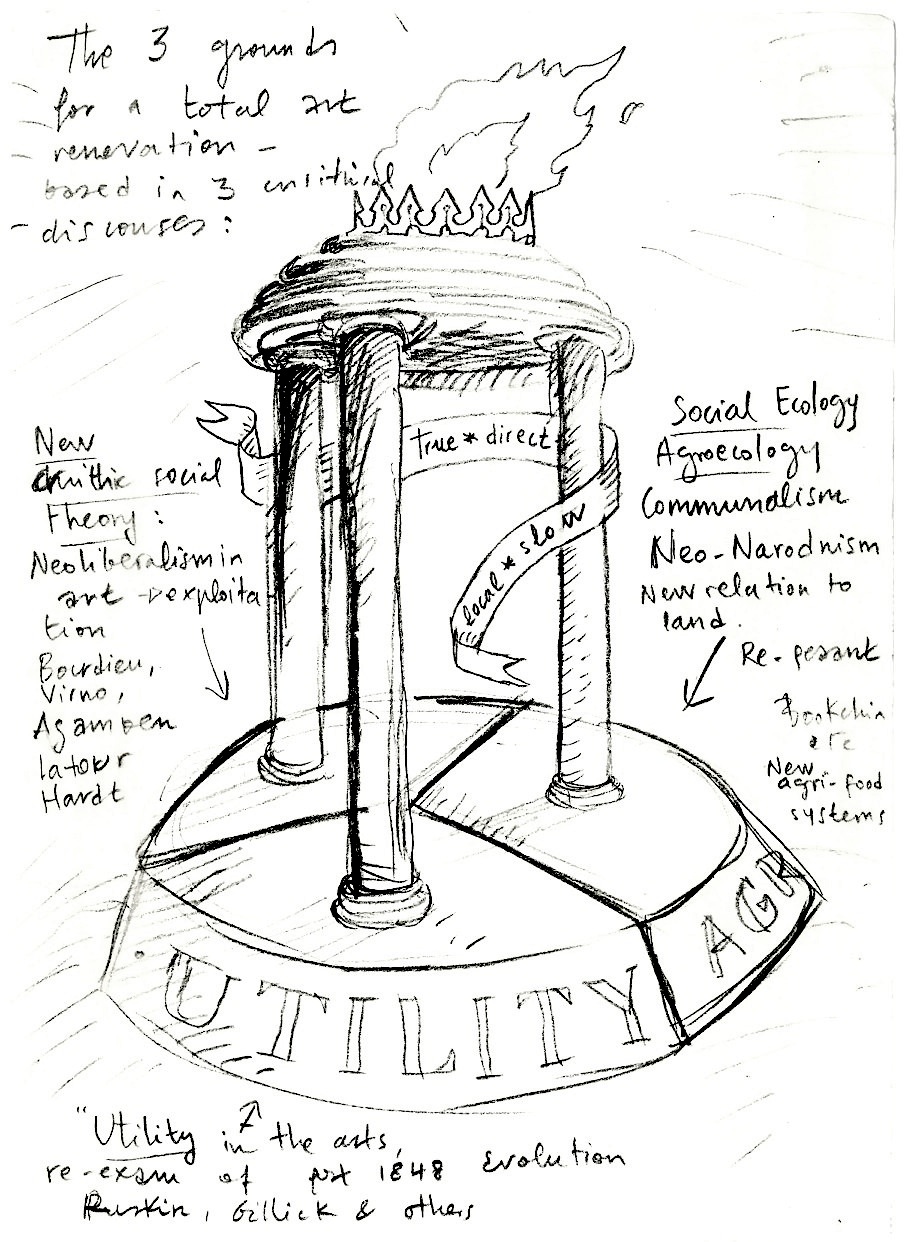 The 3 grounds
for a total art
renovation -
based in 3
- discouses:
true * direct
local * slow
New
social
Theory:
Neoliberalism in
art → exploita
tion
Bourdieu,
Virno,
Agamben
Latour
Hardt
Social Ecology
Agroecology
Communalism
Neo-Narodnism
New relation to
land.
Re-pesant
Bookchin
etc
New
agri-food
systems
UTILITY
AGR
"Utility in the arts,
re-exam of pst 1848 Evolution
Ruskin, Gillick & others